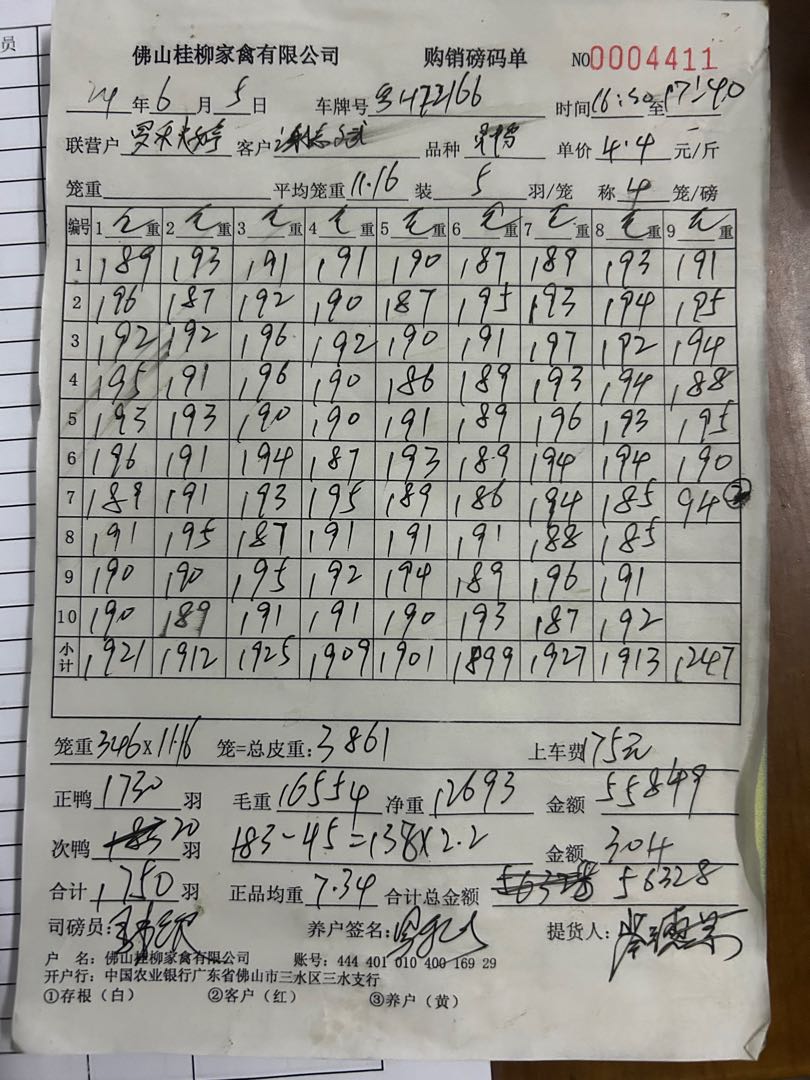 员
佛山桂柳家禽有限公司 购销磅码单 NO0004411
24年6月5日 车牌号 472166 时间16:30至17:40
联营户 罗 客户 品种 单价4.4元/斤
笼重 平均笼重11.16 装5羽/笼 称4笼/磅
编号 1毛重 2毛重 3毛重 4毛重 5毛重 6毛重 7毛重 8毛重 9毛重
1 189 193 191 191 190 187 189 193 191
2 196 187 192 190 187 195 193 194 195
3 192 192 196 192 190 191 197 192 194
4 195 191 196 190 186 189 193 194 188
5 193 193 190 190 191 189 196 193 195
6 196 191 194 187 193 189 194 194 190
7 189 191 193 195 189 186 194 185 94 ②
8 191 195 187 191 191 191 188 185
9 190 190 195 192 194 189 196 191
10 190 189 191 191 190 193 187 192
小计 1921 1912 1925 1909 1901 1899 1927 1913 1247
笼重346X11.16 笼=总皮重:3861 上车费175元
正鸭1730羽 毛重16554 净重12693 金额55849
次鸭20羽 183-45=138X2.2 金额304
合计1750羽 正品均重7.34 合计总金额56328
司磅员: 养户签名: 提货人:
户 名:佛山桂柳家禽有限公司 账号:444 401 010 400 169 29
开户行:中国农业银行广东省佛山市三水区三水支行
①存根(白) ②客户(红) ③养户(黄)